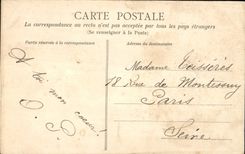 CARTE POSTALE
La correspondance au recto n'est pas acceptée par tous les pays étrangers
(Se renseigner à la Poste)
Partie réservée à la correspondance
Adresse du destinataire
A toi mon coeur!
Madame Teissères
18 Rue de Montessuy
Paris
Seine